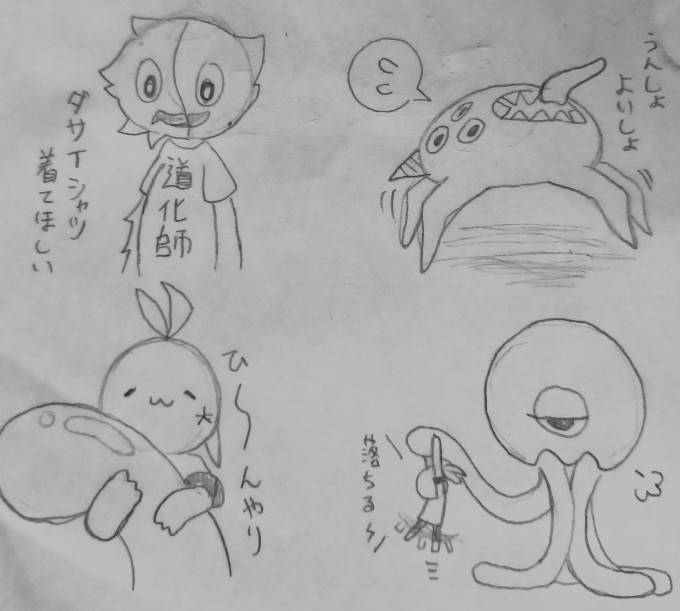 ダサイシャツ
着てほしい
道化師
うんしょ
よいしょ
ひ〜んやり
落ちる〜